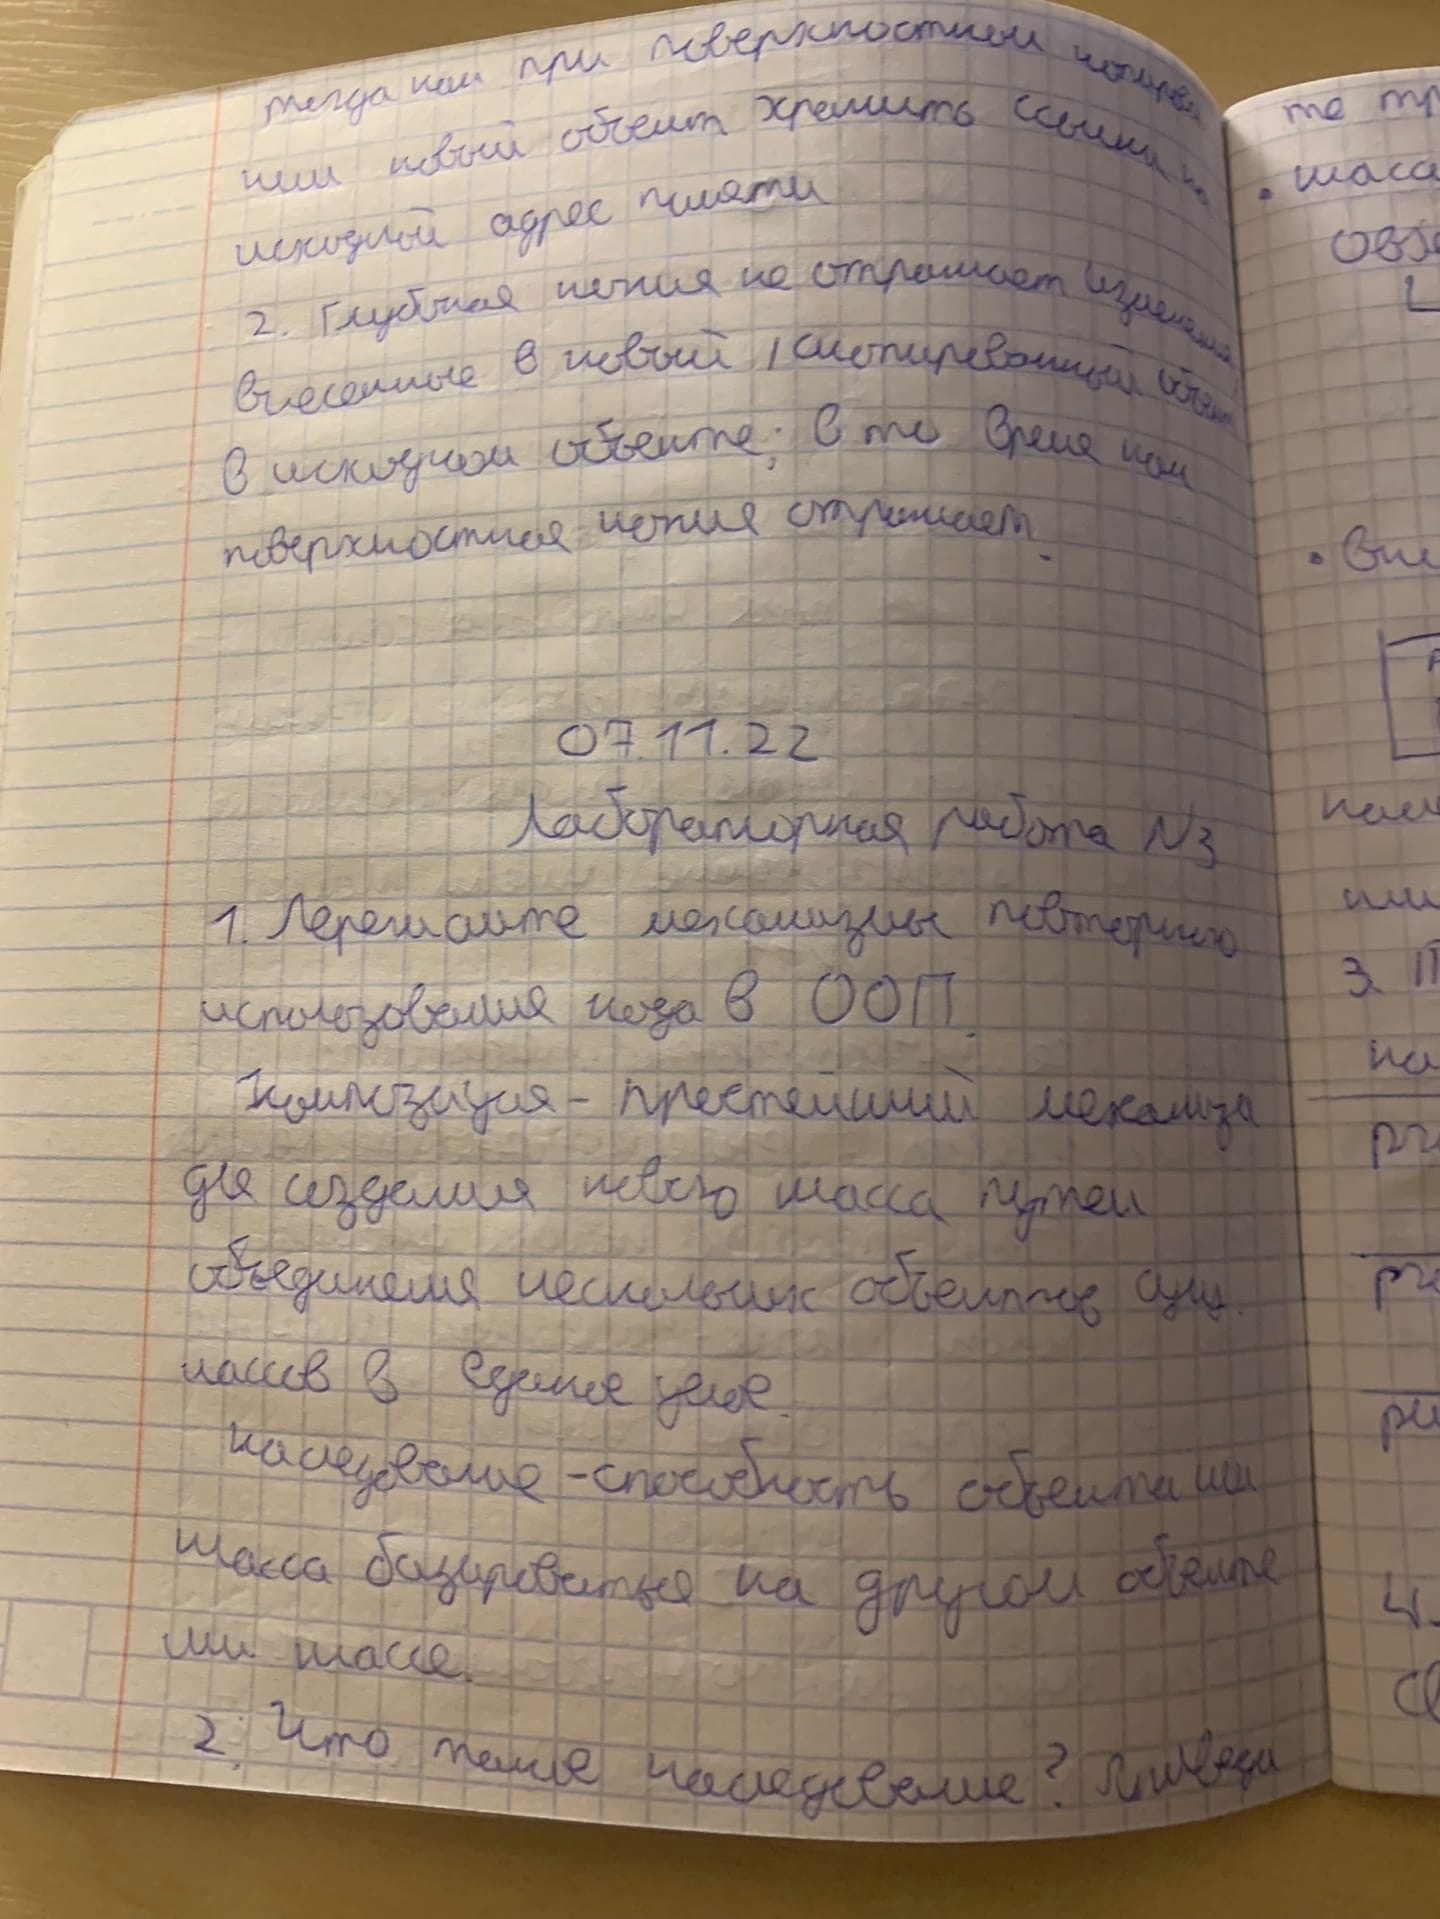 тогда как при поверхностном копирова
нии новый объект хранить ссылки на
исходной адрес памяти
2. Глубокая копия не отражает изменений,
внесенные в новый / скопированный объект
в исходном объекте; в то время как
поверхностная копия отражает.
07.11.22
Лабораторная работа N3
1. Перечислите механизмы повторного
использования кода в ООП.
Композиция - простейший механиза
для создания нового класса путем
объединения нескольких объектов сущ.
классов в единое целое.
Наследование - способность объекта или
класса базироваться на другом объекте
или классе.
2. Что такое наследование? Приведи
те
• класс
• Вн
3. П
на
4.